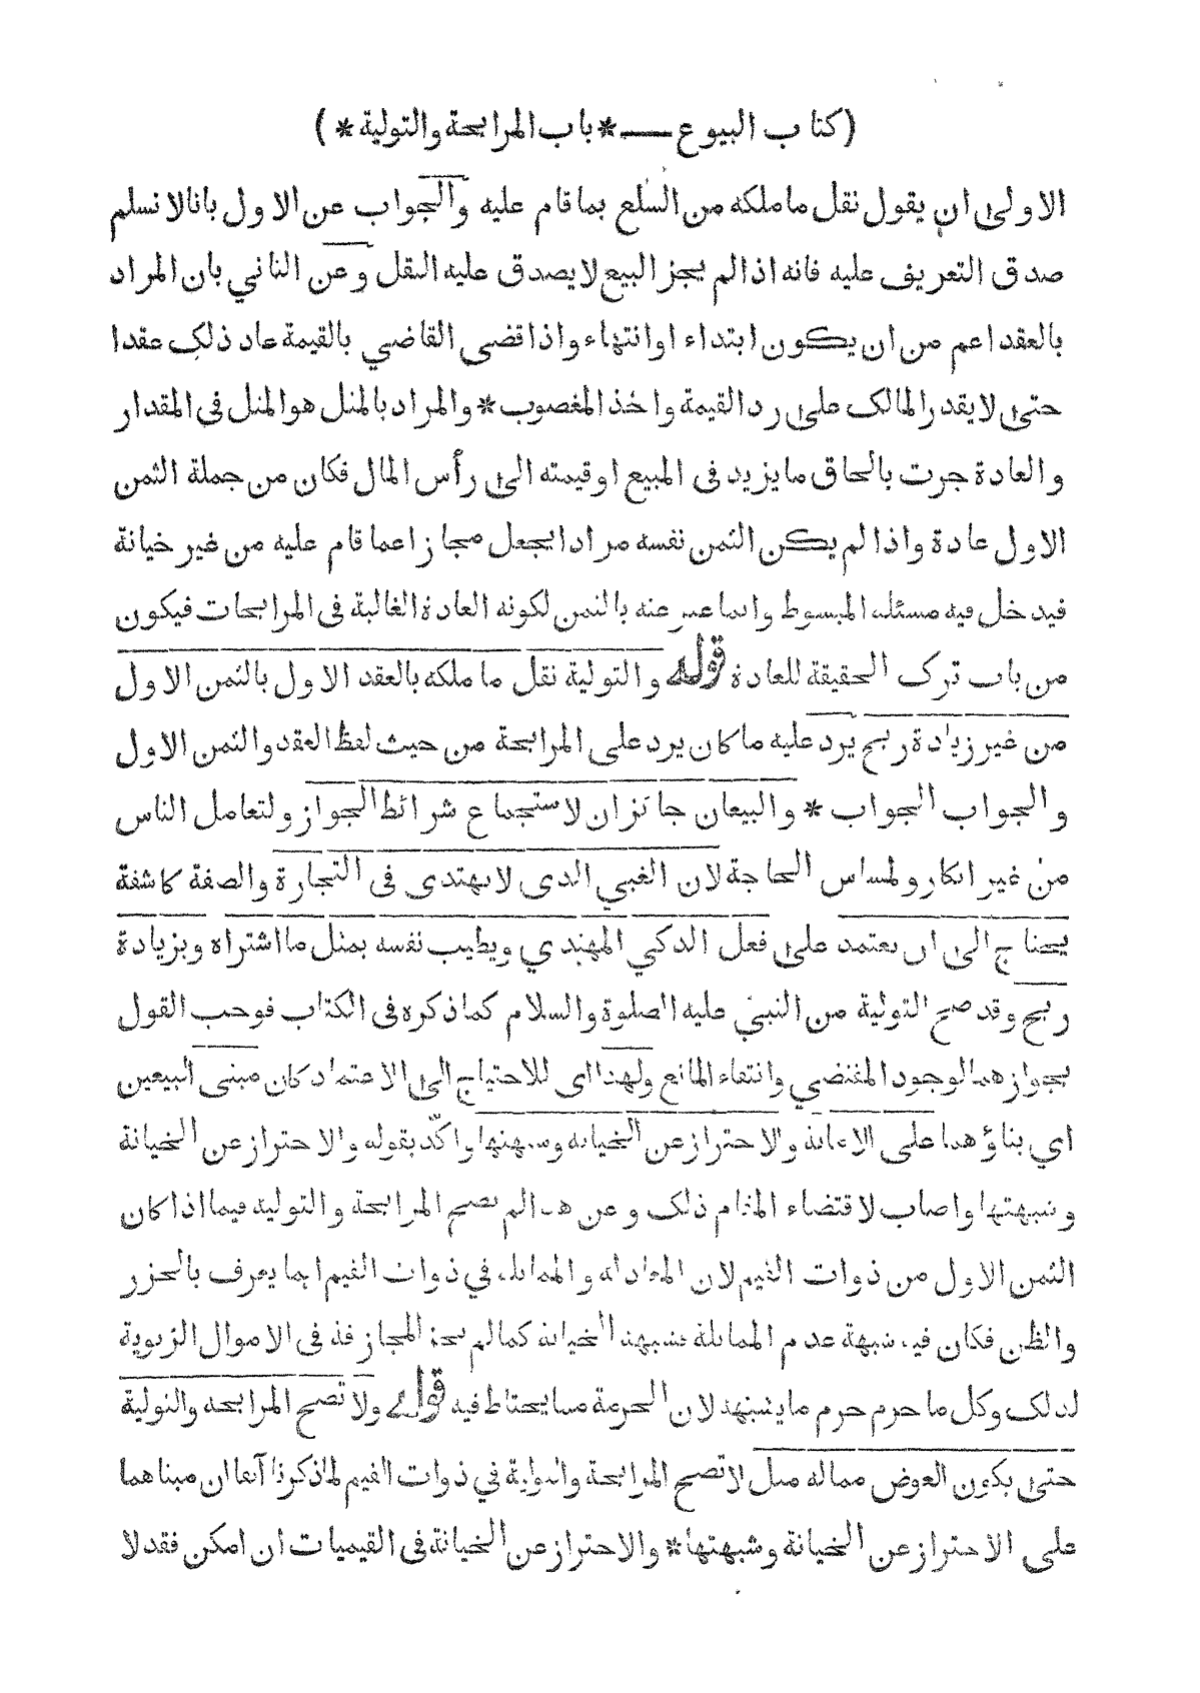 (كتاب البيوع — * باب المرابحة والتولية * )
الاولى ان يقول نقل ما ملكه من السلع بما قام عليه والجواب عن الاول بانا لا نسلم
صدق التعريف عليه فانه اذا لم يجز البيع لا يصدق عليه النقل وعن الثاني بان المراد
بالعقد اعم من ان يكون ابتداء او انتهاء واذا قضى القاضي بالقيمة عاد ذلك عقدا
حتى لا يقدر المالك على رد القيمة واخذ المغصوب * والمراد بالمثل هو المثل فى المقدار
والعادة جرت بالحاق ما يزيد فى المبيع او قيمته الى رأس المال فكان من جملة الثمن
الاول عادة واذا لم يكن الثمن نفسه مرادا يجعل مجازا عما قام عليه من غير خيانة
فيدخل فيه مسئلة المبسوط وانما عبر عنه بالثمن لكونه العادة الغالبة فى المرابحات فيكون
من باب ترك الحقيقة للعادة قوله والتولية نقل ما ملكه بالعقد الاول بالثمن الاول
من غير زيادة ربح يرد عليه ما كان يرد على المرابحة من حيث لفظ العقد والثمن الاول
والجواب الجواب * والبيعان جائزان لاستجماع شرائط الجواز ولتعامل الناس
من غير انكار ولمساس الحاجة لان الغبي الذى لا يهتدى فى التجارة والصفة كاشفة
يحتاج الى ان يعتمد على فعل الذكي المهتدي ويطيب نفسه بمثل ما اشتراه وبزيادة
ربح وقد صح التولية من النبي عليه الصلوة والسلام كما ذكره فى الكتاب فوجب القول
بجوازهما لوجود المقتضي وانتفاء المانع ولهذا اى للاحتياج الى الاعتماد كان مبنى البيعين
اي بناؤهما على الامانة والاحتراز عن الخيانة وشبهتها واكّد بقوله والاحتراز عن الخيانة
وشبهتها واصاب لاقتضاء المقام ذلك وعن هذا لم يصح المرابحة والتولية فيما اذا كان
الثمن الاول من ذوات القيم لان المعادلة والمماثلة في ذوات القيم انما يعرف بالحزر
والظن فكان فيه شبهة عدم المماثلة فشبهة الخيانة كما لم يجز المجازفة فى الاموال الربوية
لذلك وكل ما حرم حرم ما يشبهه لان الحرمة مما يحتاط فيه قوله ولا تصح المرابحة والتولية
حتى يكون العوض مما له مثل لا تصح المرابحة والتولية في ذوات القيم لما ذكرنا آنفا ان مبناهما
على الاحتراز عن الخيانة وشبهتها * والاحتراز عن الخيانة فى القيميات ان امكن فقد لا